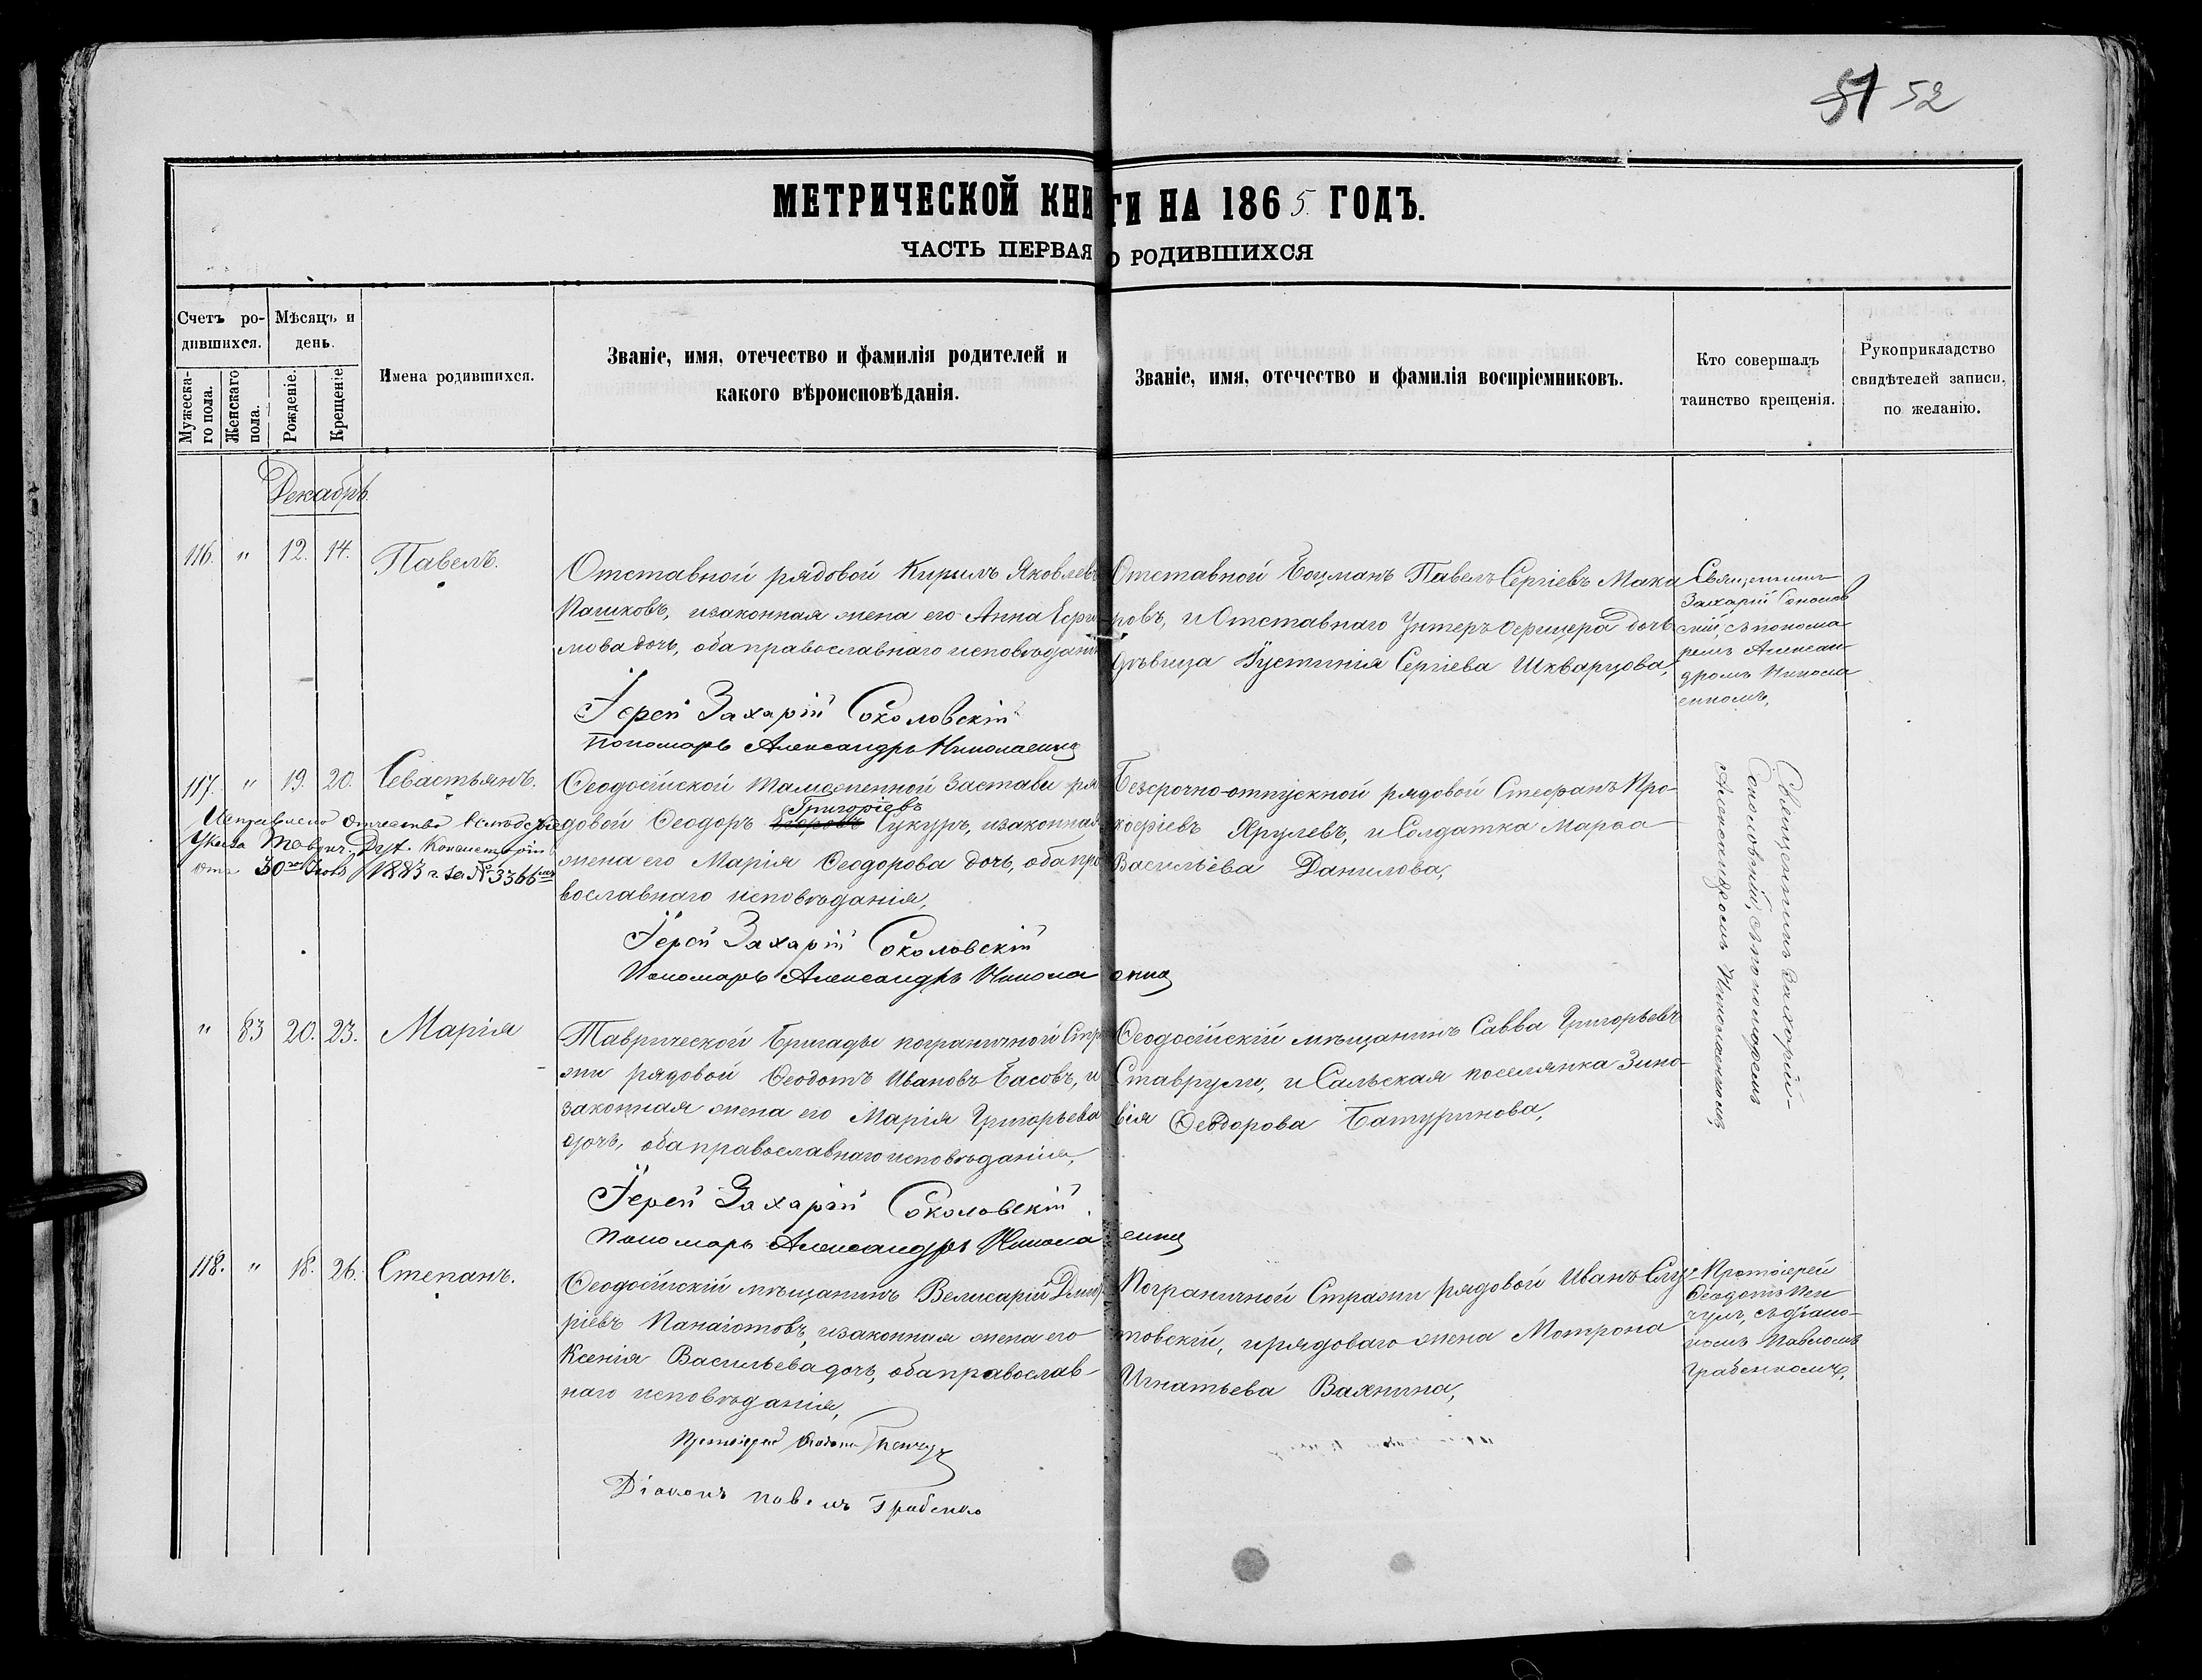 51 52
МЕТРИЧЕСКОЙ КНИГИ НА 1865 ГОДЪ.
ЧАСТЬ ПЕРВАЯ О РОДИВШИХСЯ
Счетъ родившихся.
Мужескаго пола.
Женскаго пола.
Мѣсяцъ и день.
Рожденіе.
Крещеніе.
Имена родившихся.
Званіе, имя, отечество и фамилія родителей и
какого вѣроисповѣданія.
Званіе, имя, отечество и фамилія воспріемниковъ.
Кто совершалъ
таинство крещенія.
Рукоприкладство
свидѣтелей записи,
по желанію.
Декабрь.
116. " 12. 14. Павелъ.
Отставной рядовой Кирилъ Яковлевъ
Пашковъ, изаконная жена его Анна
мова дочь, оба православнаго исповѣданія
Іерей Захарій Соколовскій
Пономарь Александръ Николаенко
Отставной Боцманъ Павелъ Сергіевъ Мака
ровъ, и Отставнаго Унтеръ Офицера дочь
дѣвица Іустинія Сергіева Шкварцова,
Священникъ
Захарій Соколов
скій, съ понома
ремъ Алексан
дромъ Никола
енкомъ,
117. " 19. 20. Севастьянъ.
Исправлено отчество вслѣдствіе
Указа Таврич. Дух. Консисторіи
отъ 30го 1883 г. за № 3366
Ѳеодосійской таможенной Заставы ря
Григоріевъ
довой Ѳеодоръ Сукуръ, изаконная
жена его Марія Ѳеодорова дочь, оба пра
вославнаго исповѣданія,
Іерей Захарій Соколовскій
Пономарь Александръ Николаенко
Безсрочно-отпускной рядовой Стефанъ Про-
кофіевъ Ярулевъ, и Солдатка Марѳа
Васильева Данилова,
Священникъ Захарій
Соколовскій, съ пономаремъ
Александромъ Николаенкомъ,
" 83 20. 23. Марія
Таврической Бригады пограничной Стра
жи рядовой Ѳеодотъ Ивановъ Басовъ, и
законная жена его Марія Григорьева
дочь, оба православнаго исповѣданія,
Іерей Захарій Соколовскій
Пономарь Александръ Николаенко
Ѳеодосійскій мѣщанинъ Савва Григорьевъ
Ставрули, и Сальская поселянка Зино-
вія Ѳеодорова Батуринова,
118. " 18. 26. Степанъ.
Ѳеодосійскій мѣщанинъ Велисарій Димит
ріевъ Панаіотовъ, изаконная жена его
Ксенія Васильева дочь, оба православ-
наго исповѣданія,
Протоіерей Ѳеодотъ
Діаконъ Павелъ Грабенко
Пограничной Стражи рядовой Иванъ
товскій, ирядоваго жена Мотрона
Игнатьева Вахнина,
Протоіерей
Ѳеодотъ
съ діако-
номъ Павломъ
Грабенкомъ,